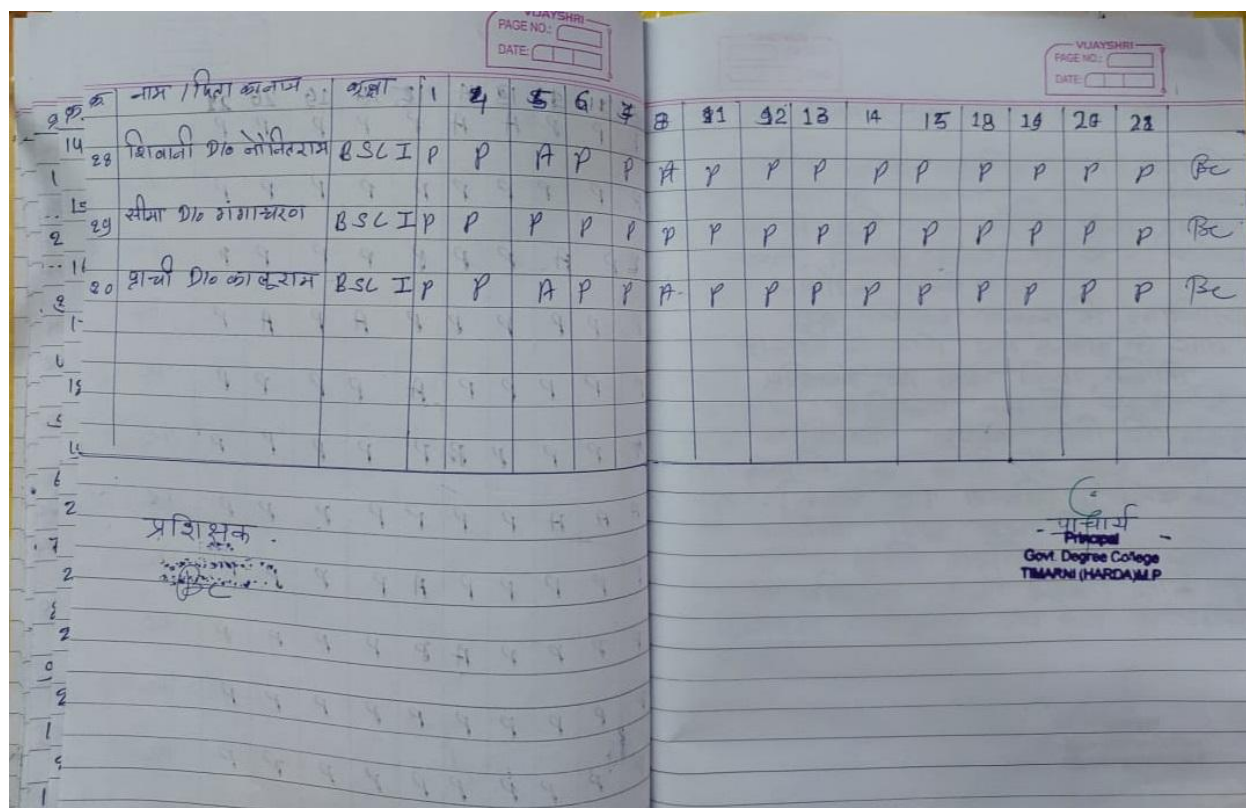 VIJAYSHRI
PAGE NO.:
DATE:
VIJAYSHRI
PAGE NO.:
DATE:
क्र. नाम / पिता का नाम कक्षा 1 4 5 6 7 8 11 12 13 14 15 18 19 20 21
28 शिवानी D/o नौनितराम BSC I P P A P P A P P P P P P P P P Bc
29 सीमा D/o गंगाचरण BSC I P P P P P P P P P P P P P P P Bc
प्राची D/o कालूराम BSC I P P A P P A P P P P P P P P P Bc
प्रशिक्षक
Bc
प्राचार्य
Principal
Govt. Degree College
TIMARNI (HARDA) M.P